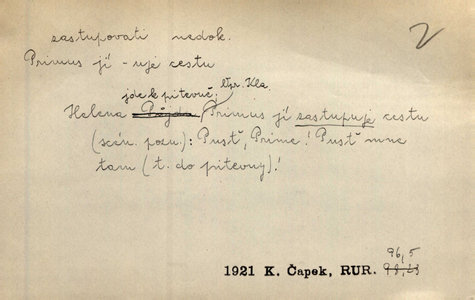 zastupovati nedok.
Primus jí -uje cestu
jde k pitevně;
Helena Primus jí zastupuje cestu
(scén. pozn.): Pusť, Prime! Pusť mne
tam (t. do pitevny)!
1921 K. Čapek, RUR. 96,5